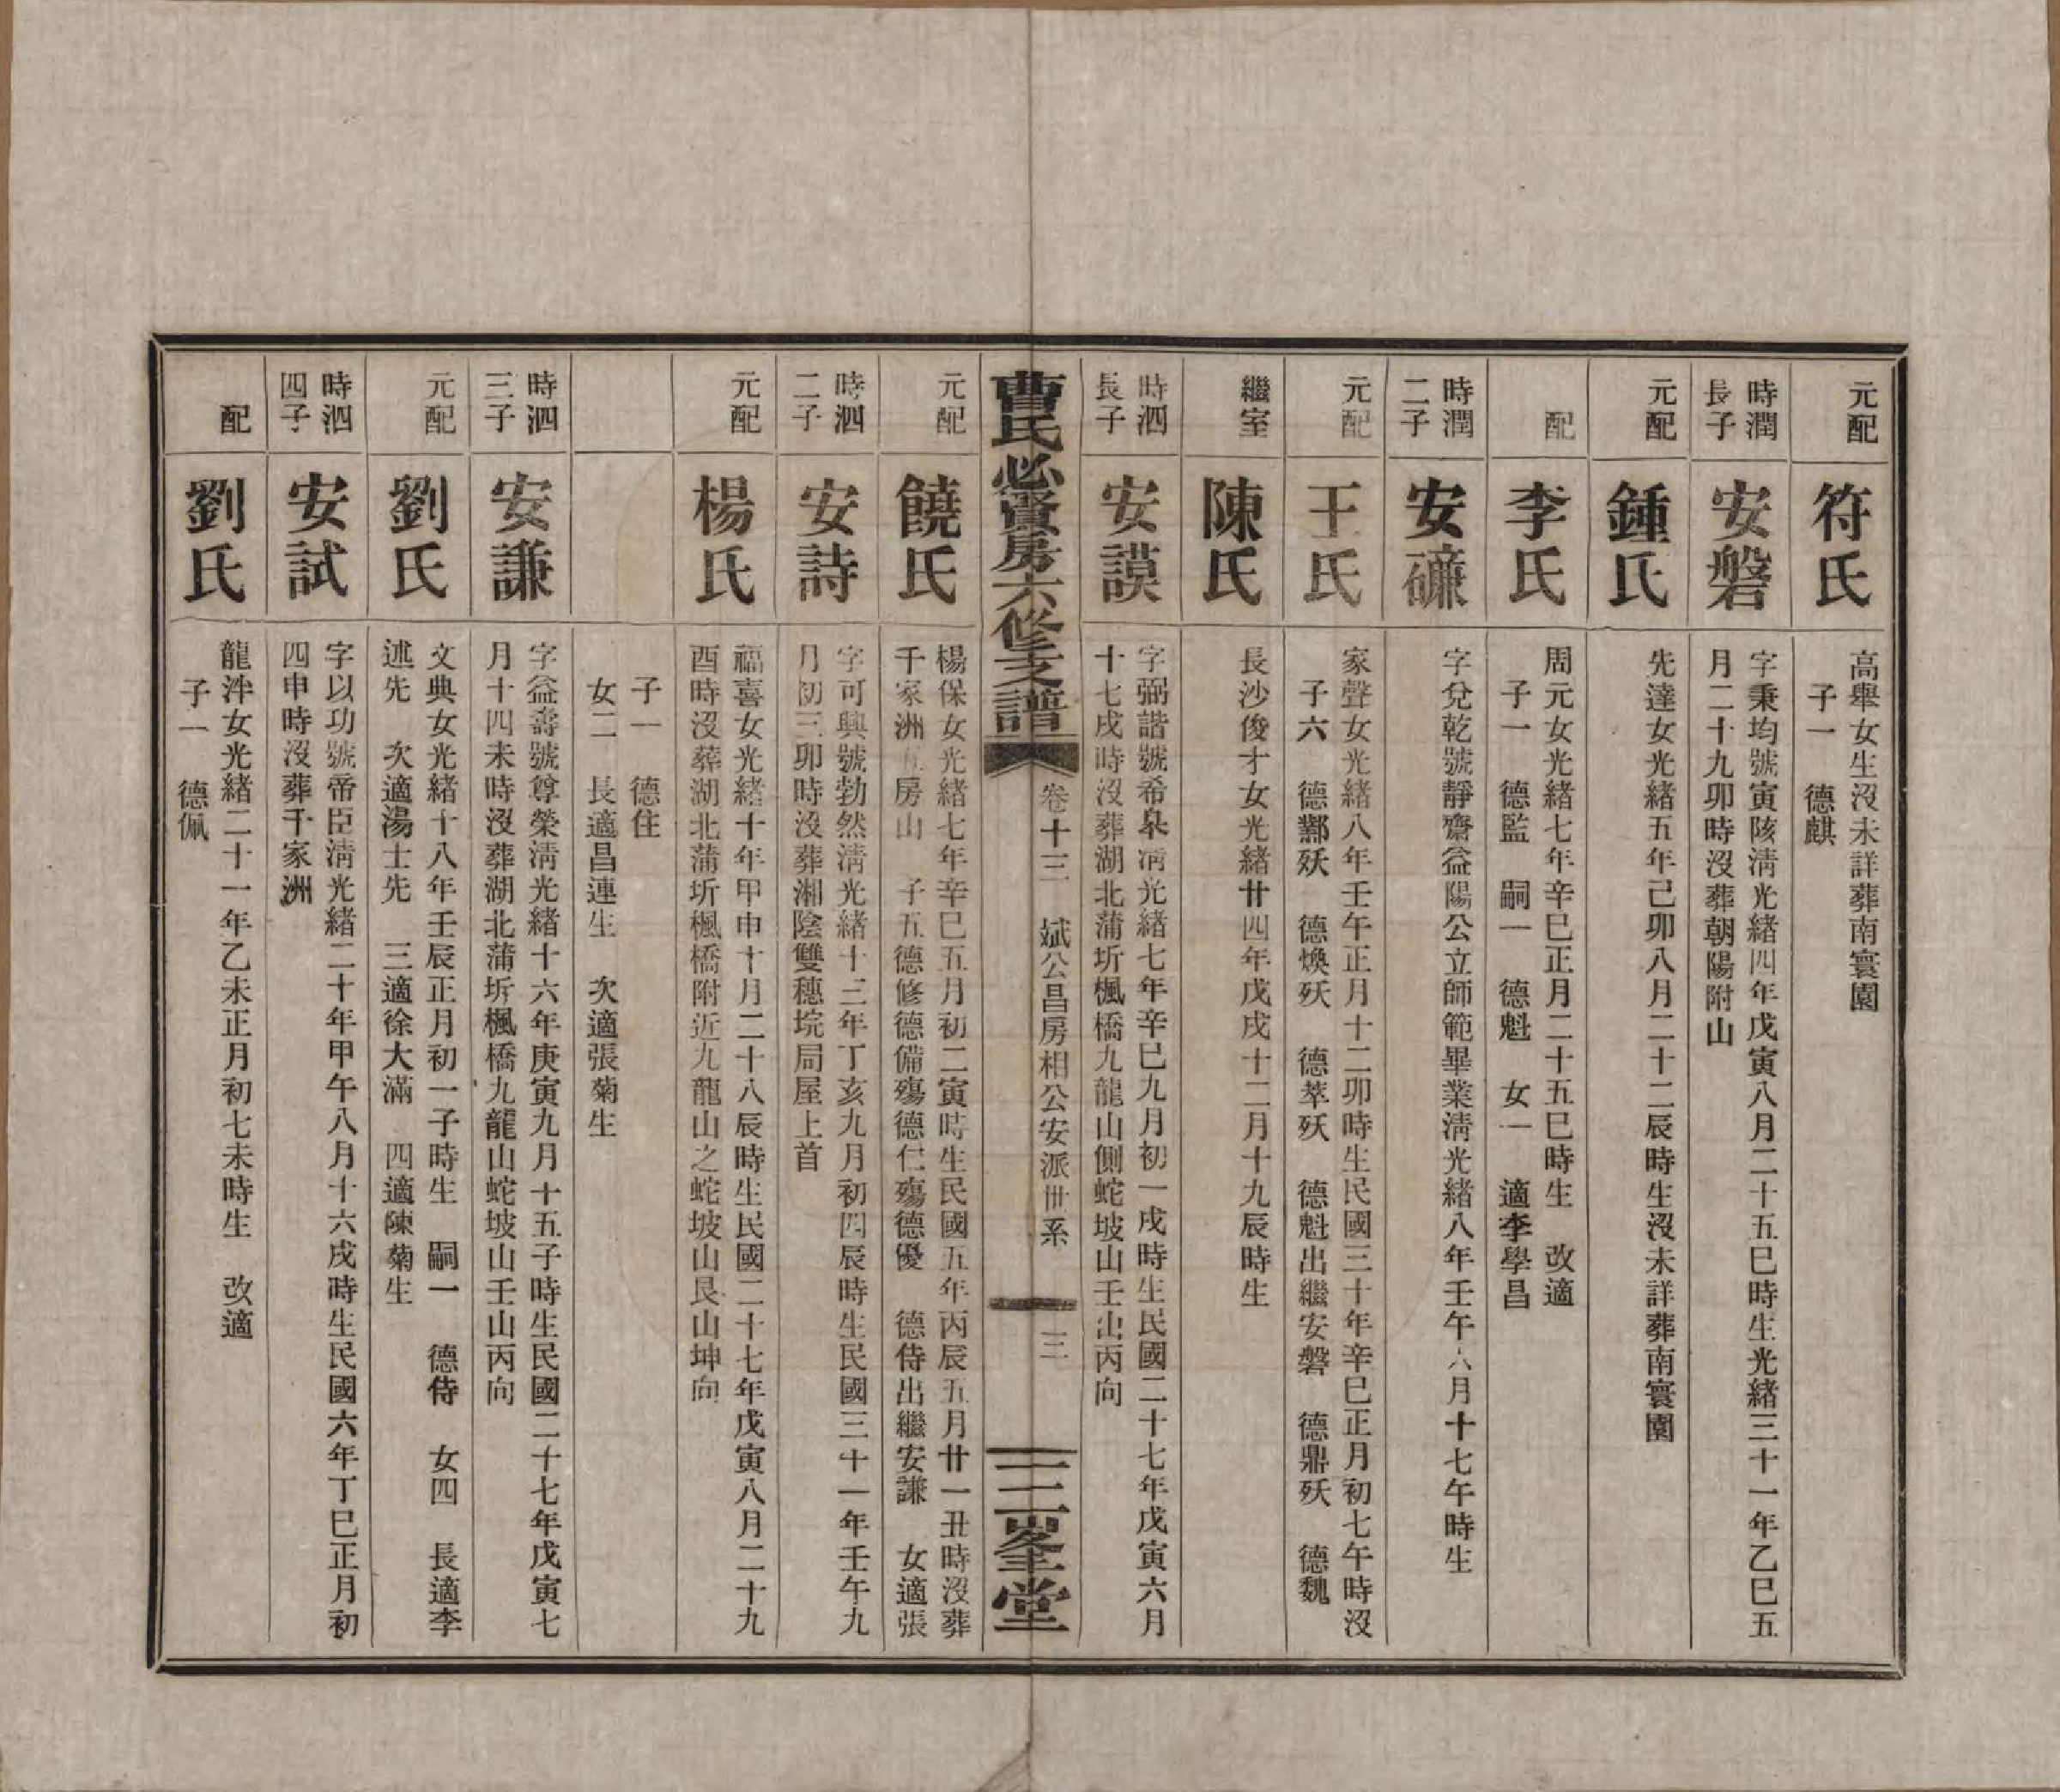 元配
符氏
高舉女生沒未詳葬南寰園
子一　德麒
時潤
長子
安磐
字秉均號寅陔淸光緒四年戊寅八月二十五巳時生光緒三十一年乙巳五
月二十九卯時沒葬朝陽附山
元配
鍾氏
先達女光緒五年己卯八月二十二辰時生沒未詳葬南寰園
配
李氏
周元女光緒七年辛巳正月二十五巳時生　改適
子一　德監　嗣一　德魁　女一　適李學昌
時潤
二子
安磏
字兌乾號靜齋益陽公立師範畢業淸光緒八年壬午六月十七午時生
元配
王氏
家聲女光緒八年壬午正月十二卯時生民國三十年辛巳正月初七午時沒
子六　德酆殀　德煥殀　德萃殀　德魁出繼安磐　德鼎殀　德魏
繼室
陳氏
長沙俊才女光緒廿四年戊戌十二月十九辰時生
時泗
長子
安謨
字弼諧號希泉淸光緒七年辛巳九月初一戌時生民國二十七年戊寅六月
十七戌時沒葬湖北蒲圻楓橋九龍山側蛇坡山壬山丙向
曹氏必賢房六修支譜
卷十三　斌公昌房相公安派世系
三
三峯堂
元配
饒氏
楊保女光緒七年辛巳五月初二寅時生民國五年丙辰五月廿一丑時沒葬
千家洲五房山　子五德修德備殤德仁殤德優　德侍出繼安謙　女適張
時泗
二子
安詩
字可興號勃然淸光緒十三年丁亥九月初四辰時生民國三十一年壬午九
月初三卯時沒葬湘陰雙穗垸局屋上首
元配
楊氏
福喜女光緒十年甲申十月二十八辰時生民國二十七年戊寅八月二十九
酉時沒葬湖北蒲圻楓橋附近九龍山之蛇坡山艮山坤向
子一　德住
女二　長適昌連生　次適張菊生
時泗
三子
安謙
字益壽號尊榮淸光緒十六年庚寅九月十五子時生民國二十七年戊寅七
月十四未時沒葬湖北蒲圻楓橋九龍山蛇坡山壬山丙向
元配
劉氏
文典女光緒十八年壬辰正月初一子時生　嗣一　德侍　女四　長適李
述先　次適湯士先　三適徐大滿　四適陳菊生
時泗
四子
安試
字以功號帝臣淸光緒二十年甲午八月十六戌時生民國六年丁巳正月初
四申時沒葬千家洲
配
劉氏
龍泮女光緒二十一年乙未正月初七未時生　改適
子一　德佩